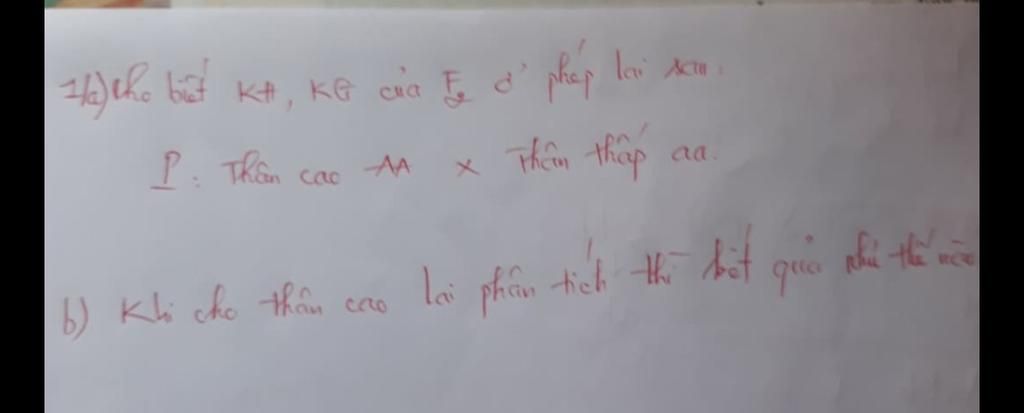 1/a) Cho biết KH, KG của F2 ở phép lai sau:
P: Thân cao AA x Thân thấp aa.
b) Khi cho thân cao lai phân tích thì kết quả như thế nào